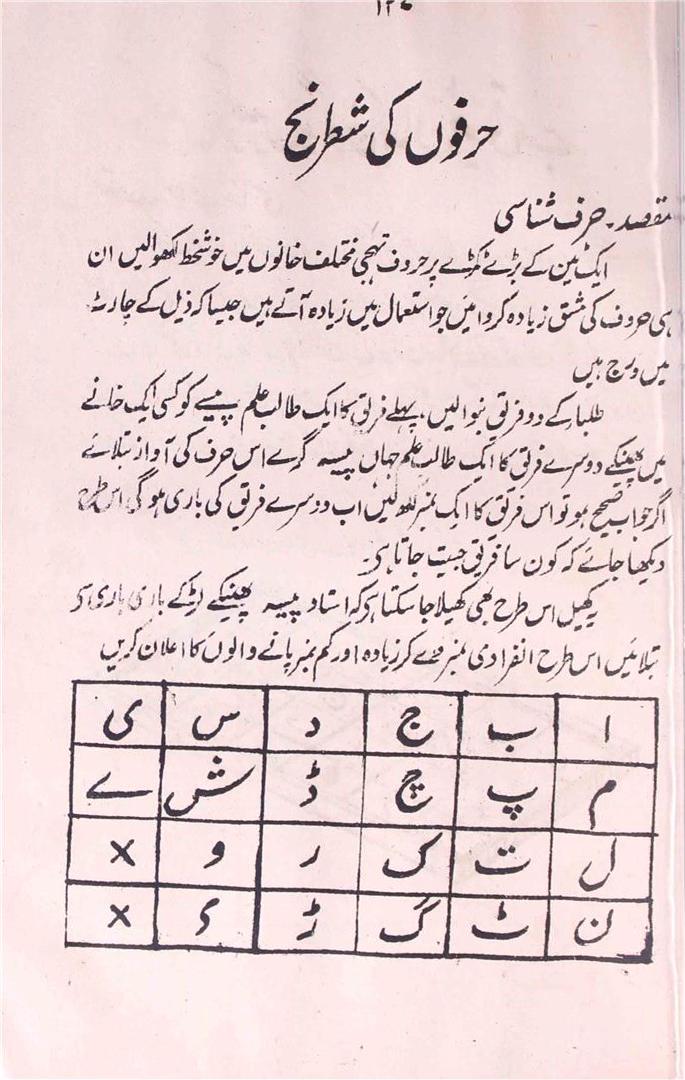 ۱۲۷
حرفوں کی شطرنج
مقصد۔ حرف شناسی
ایک ٹین کے بڑے ٹکڑے پر حروف تہجی مختلف خانوں میں خوشخط لکھوالیں ان
ہی حروف کی مشق زیادہ کروائیں جو استعمال میں زیادہ آتے ہیں جیسا کہ ذیل کے چارٹ
میں درج ہیں
طلباء کے دو فریق بنوالیں، پہلے فریق کا ایک طالب علم پیسے کو کسی ایک خانے
میں پھینکے دوسرے فریق کا ایک طالب علم جہاں پیسہ گرے اس حرف کی آواز بتلائے
اگر جواب صحیح ہو تو اس فریق کا ایک نمبر لکھ لیں اب دوسرے فریق کی باری ہوگی اس طرح
دیکھا جائے کہ کون سا فریق جیت جاتا ہی۔
یہ کھیل اس طرح بھی کھیلا جا سکتا ہی کہ استاد پیسہ پھینکے لڑکے باری باری سی
بتلائیں اس طرح انفرادی نمبر دے کر زیادہ اور کم نمبر پانے والوں کا اعلان کریں
ا ب ج د س ی
م پ چ ڈ ش ے
ل ت ک ر و ×
ن ٹ گ ڑ ×